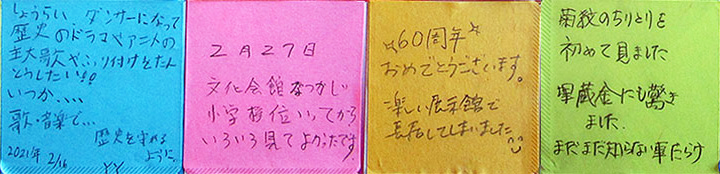 しょうらい、ダンサーになって
歴史のドラマやアニメの
主大歌やふり付けをたん
とうしたい!!
いつか、...
歌・音楽で...
歴史を守れる
ように
2021年 2/16
2月27日
文化会館なつかし
小学校位いってから
いろいろ見てよかったです
60周年
おめでとうございます。
楽しい展示館で
長居してしまいました
菊紋のちりとりを
初めて見ました
埋蔵金にも驚き
ました.
まだまだ知らない事だらけ